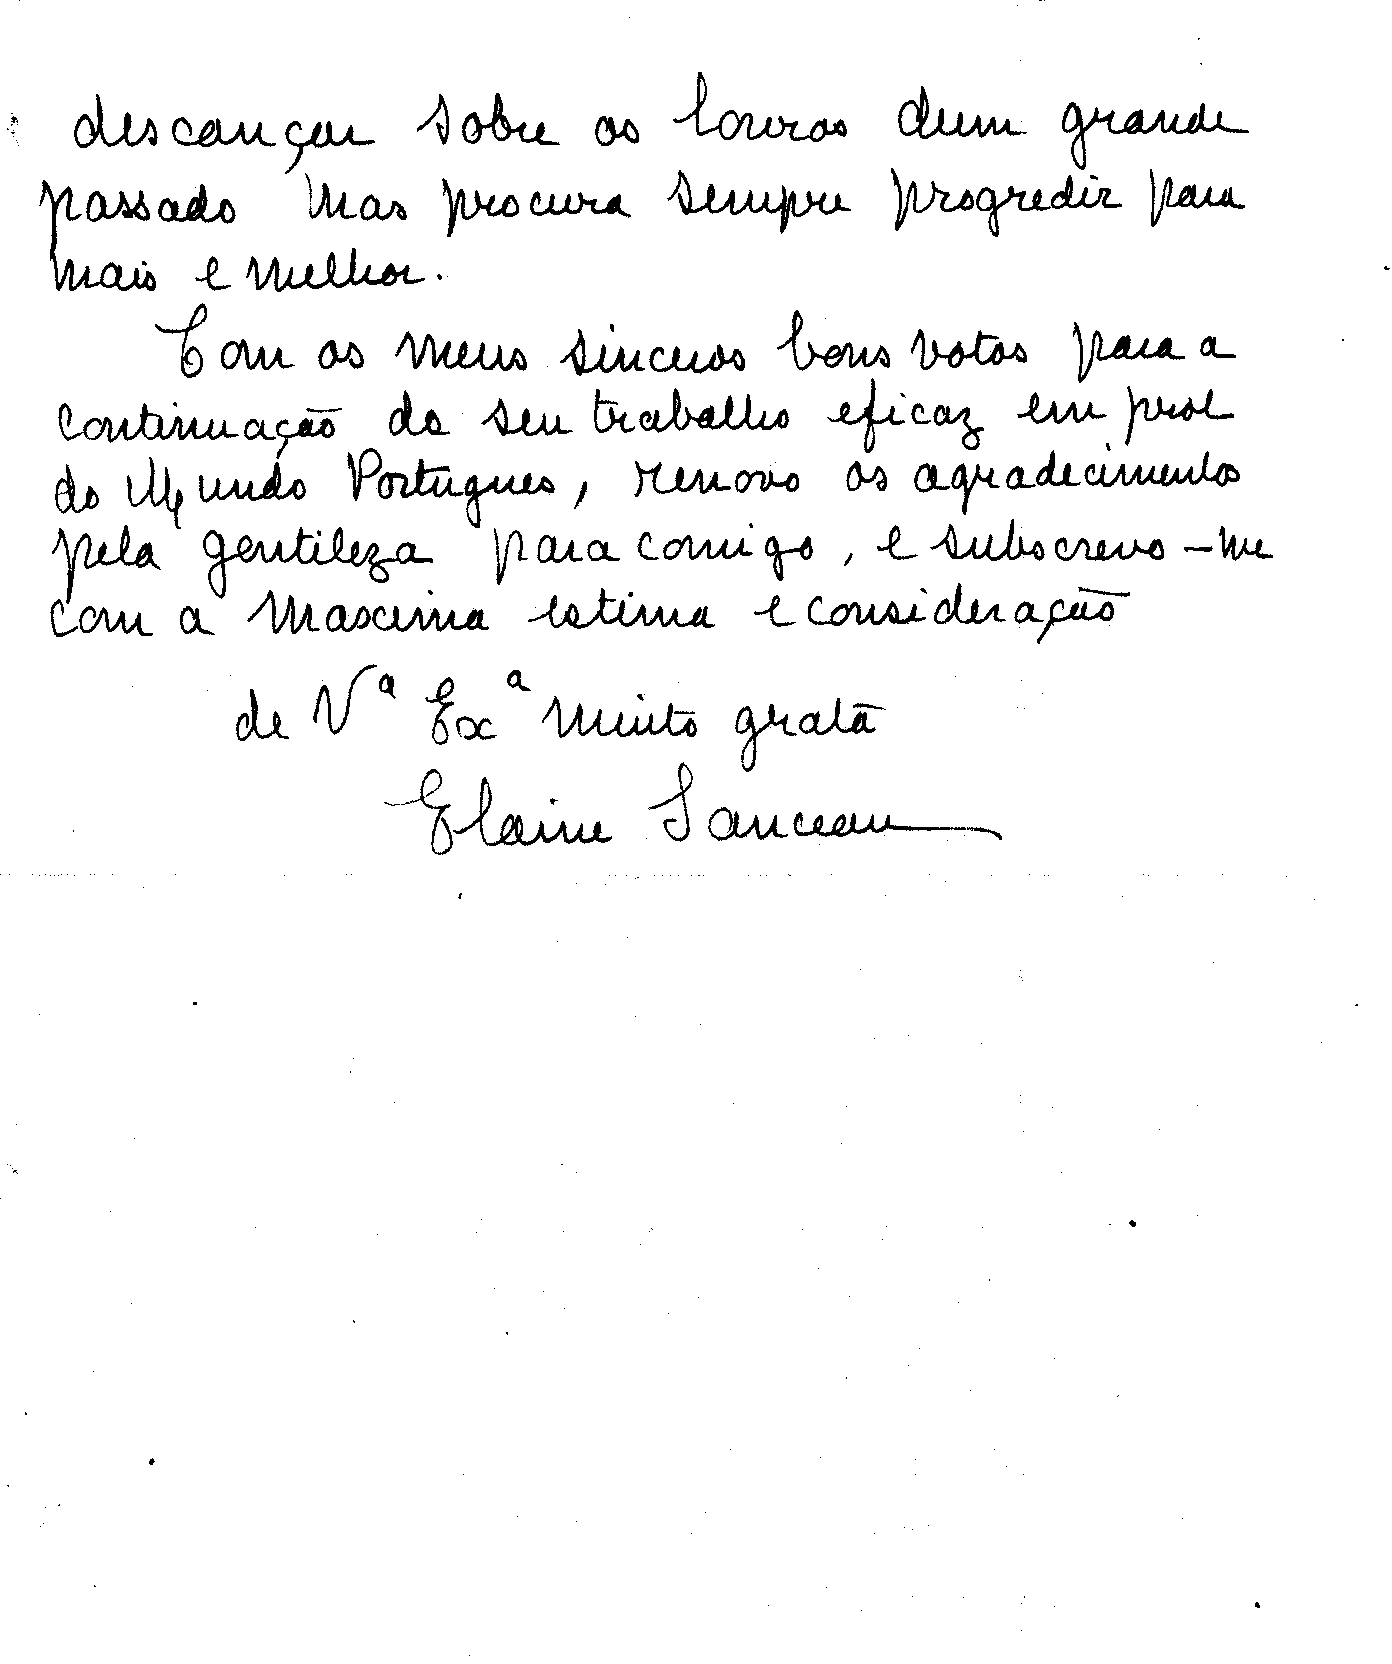 descançar sobre os louros dum grande
passado mas procura sempre progredir para
mais e melhor.
Com os meus sinceros bons votos para a
continuação do seu trabalho eficaz em prol
do Mundo Portugues, renovo os agradecimentos
pela gentileza para comigo, e subscrevo-me
com a maxima estima e consideração
de Vª Exª muito grata
Elaine Sanceau